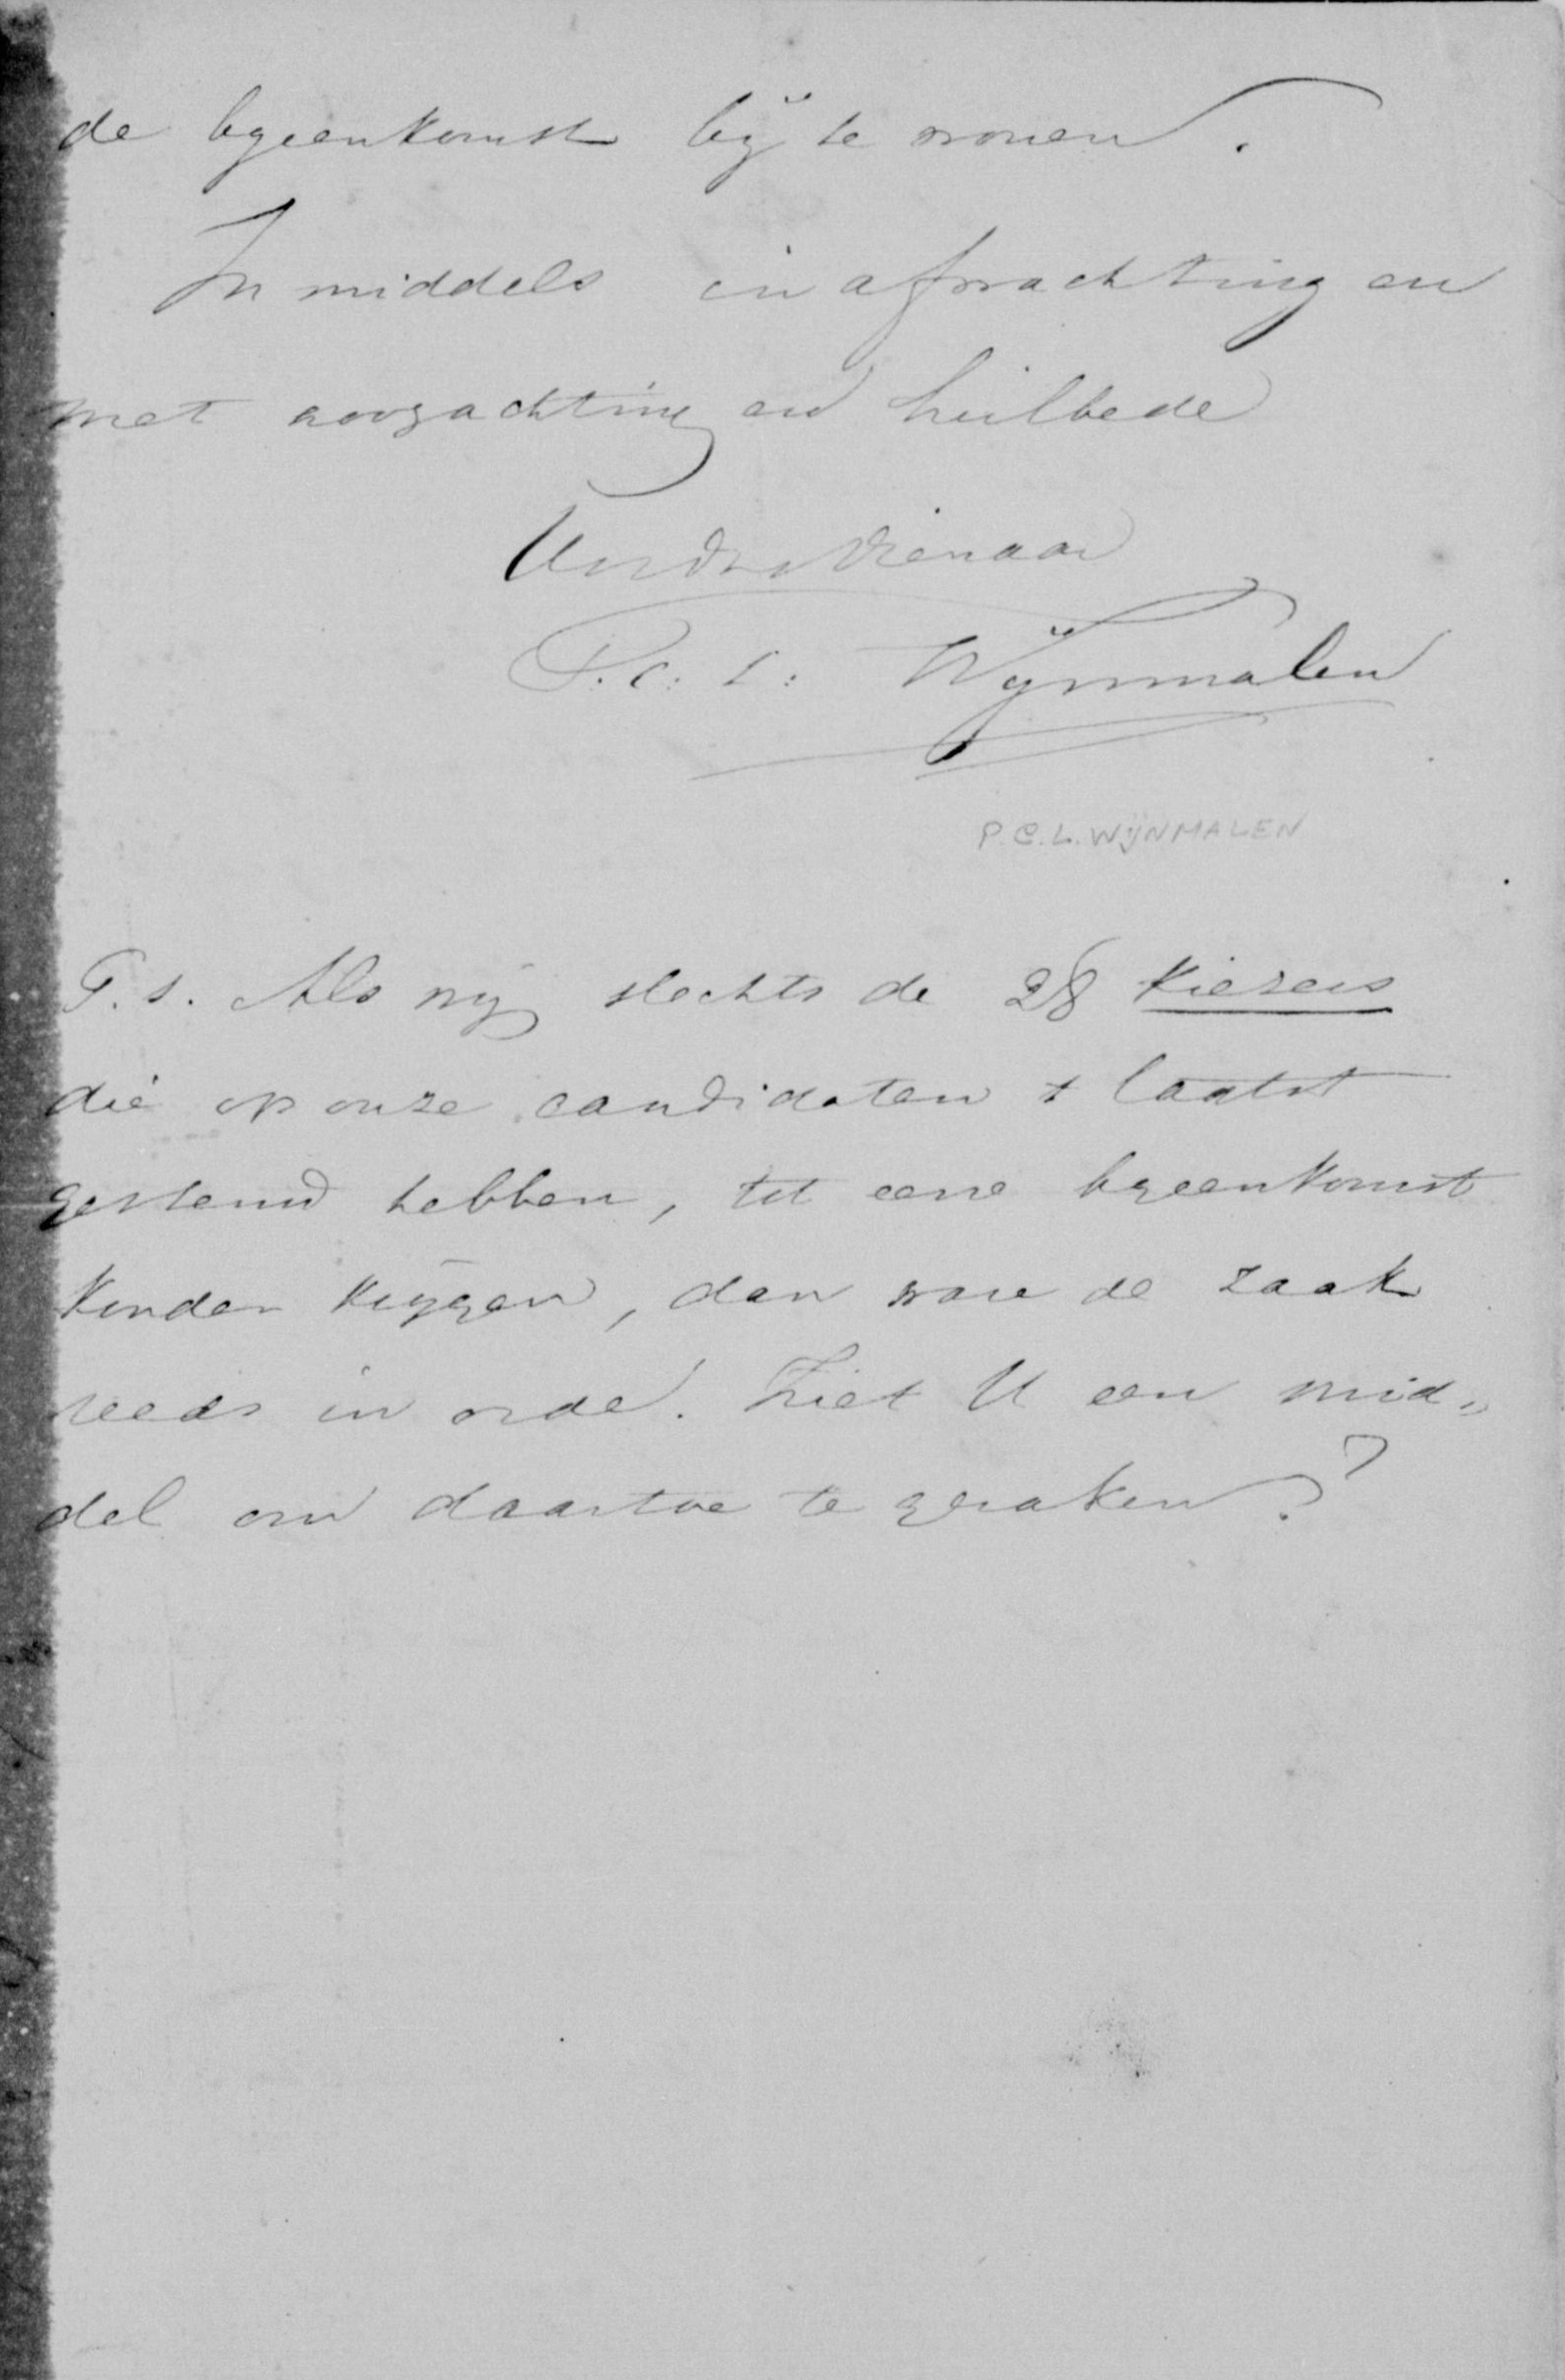 de byeenkomst bij te wonen.
Inmiddels in afwachting en
met hoogachting en heilbede
dienaar
P. C. L. Wijnmalen
P.C.L. WijNMALEN
P.s. Als wij slechts de 28 kiezers
die op onze candidaten 't laatst
gestemd hebben, tot eene byeenkomst
konden krijgen, dan ware de zaak
reeds in orde. Ziet U een mid„
del om daartoe te geraken?